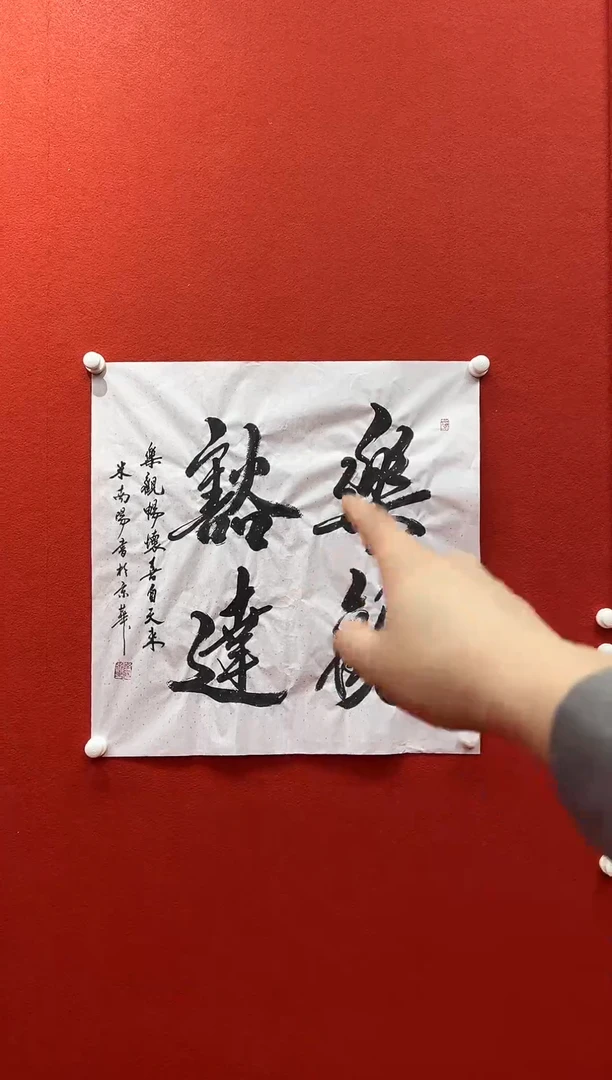 樂觀
豁達
樂觀暢懷喜自天來
米南陽書於京華